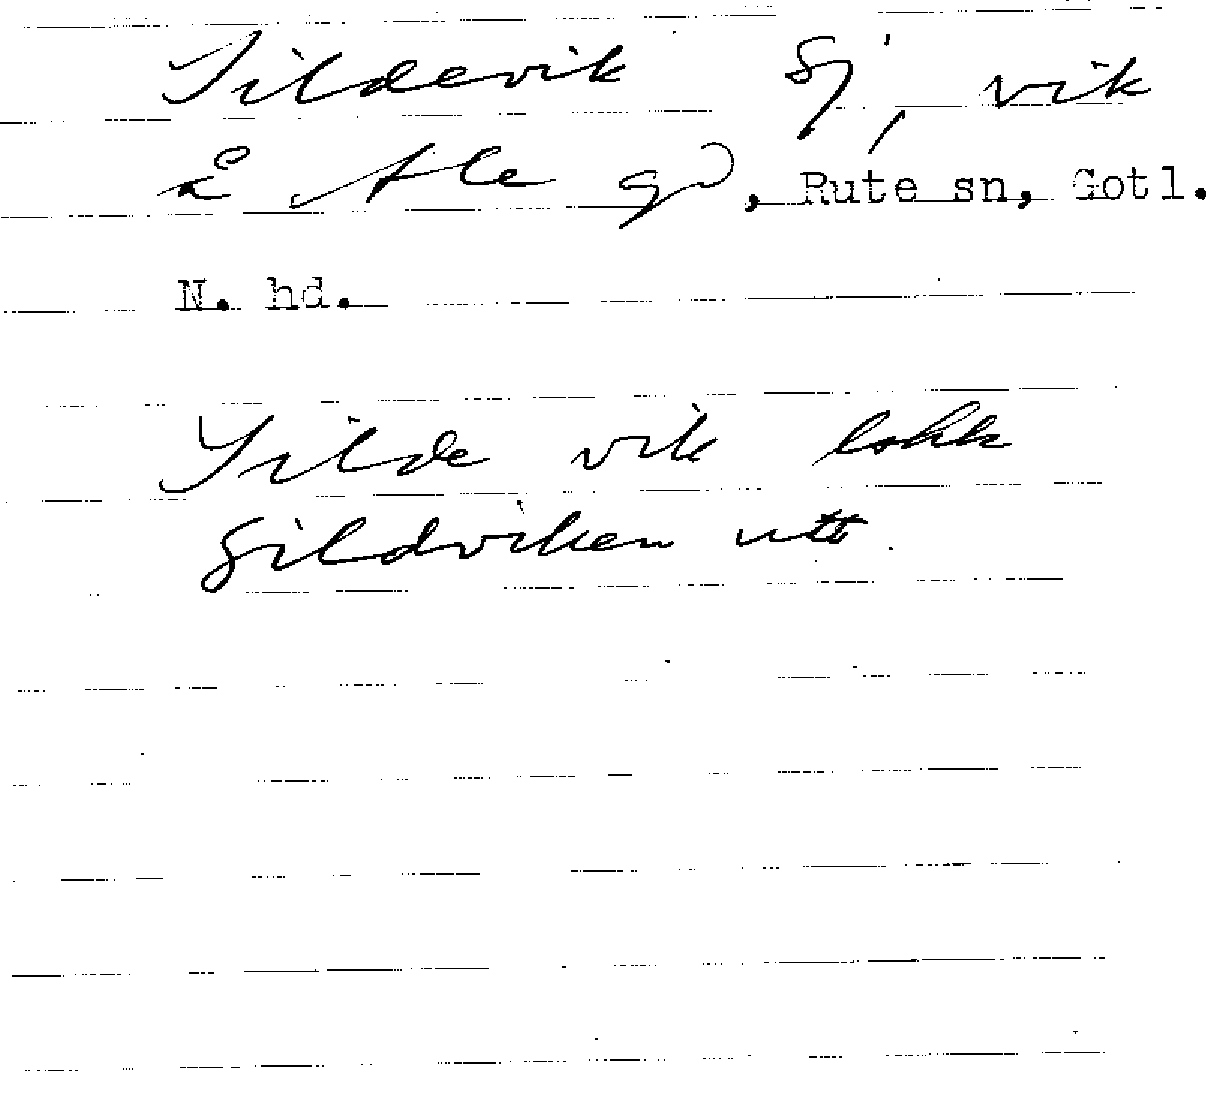 Sildevik Sj, vik
å Ale gd, Rute sn, Gotl.
N. hd.
Silde vik lokk
sildviken utt.